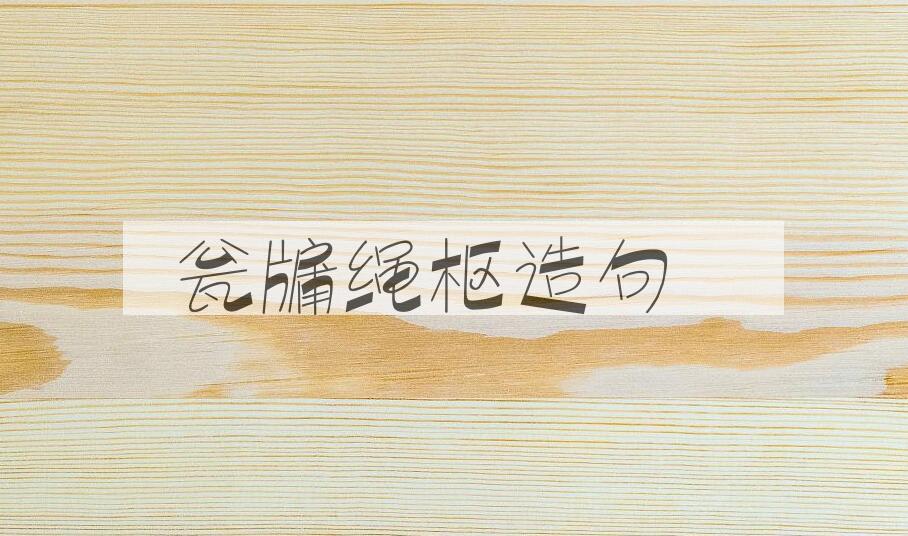 瓮牖绳枢造句